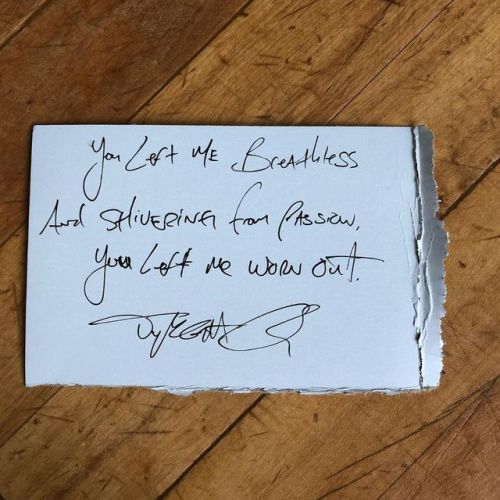 You Left ME Breathless
And SHIVERING from PASSION,
You Left me WORN OUT.